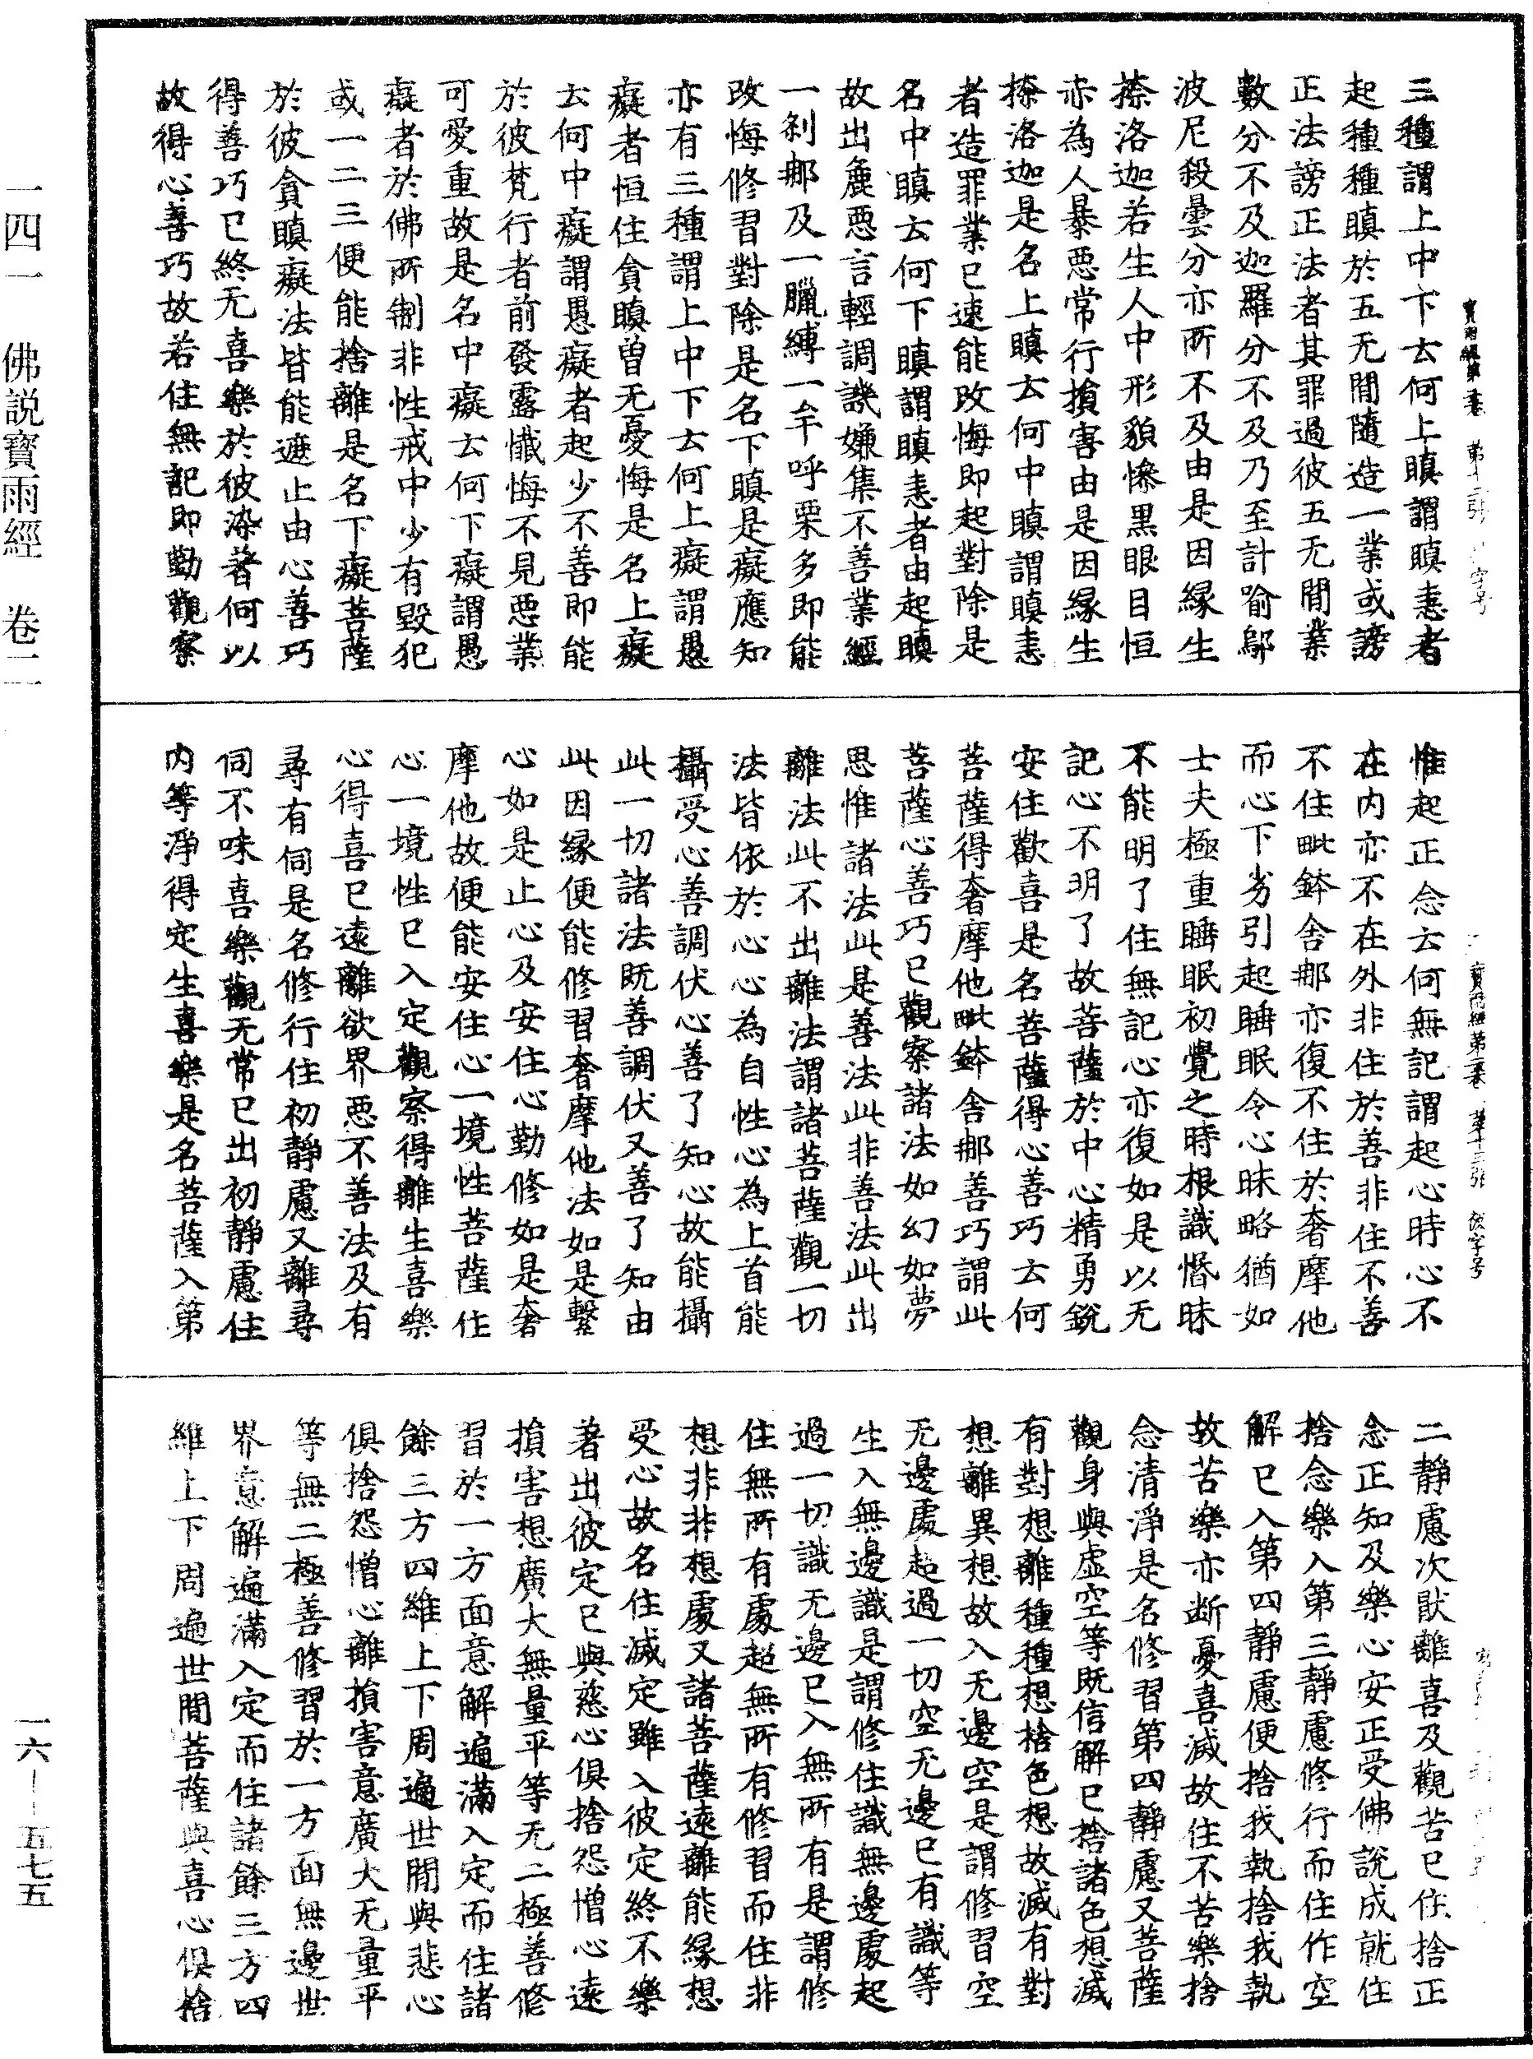 三種謂上中下云何上瞋謂瞋恚者
起種種瞋於五无間隨造一業或謗
正法謗正法者其罪過彼五无間業
數分不及迦羅分不及乃至計喻鄔
波尼殺曇分亦所不及由是因緣生
捺洛迦若生人中形貌慘黑眼目恒
赤為人暴惡常行損害由是因緣生
捺洛迦是名上瞋云何中瞋謂瞋恚
者造罪業已速能改悔即起對除是
名中瞋云何下瞋謂瞋恚者由起瞋
故出麁惡言輕調譏嫌集不善業經
一剎那及一臘縛一牟呼栗多即能
改悔修習對除是名下瞋是癡應知
亦有三種謂上中下云何上癡謂愚
癡者恒住貪瞋曾无憂悔是名上癡
云何中癡謂愚癡者起少不善即能
於彼梵行者前發露懺悔不見惡業
可愛重故是名中癡云何下癡謂愚
癡者於佛所制非性戒中少有毀犯
或一二三便能捨離是名下癡菩薩
於彼貪瞋癡法皆能遮止由心善巧
得善巧已終无喜樂於彼染著何以
故得心善巧故若住無記即勤觀察
寶雨經第二卷 第十二張 字号
惟起正念云何無記謂起心時心不
在内亦不在外非住於善非住不善
不住毗鉢舍那亦復不住於奢摩他
而心下劣引起睡眠令心昧略猶如
士夫極重睡眠初覺之時根識惛昧
不能明了住無記心亦復如是以无
記心不明了故菩薩於中心精勇銳
安住歡喜是名菩薩得心善巧云何
菩薩得奢摩他毗鉢舍那善巧謂此
菩薩心善巧已觀察諸法如幻如夢
思惟諸法此是善法此非善法此出
離法此不出離法謂諸菩薩觀一切
法皆依於心心為自性心為上首能
攝受心善調伏心善了知心故能攝
此一切諸法既善調伏又善了知由
此因緣便能修習奢摩他法如是繫
心如是止心及安住心勤修如是奢
摩他故便能安住心一境性菩薩住
心一境性已入定觀察得離生喜樂
心得喜已遠離欲界惡不善法及有
尋有伺是名修行住初靜慮又離尋
伺不味喜樂觀无常已出初靜慮住
内等淨得定生喜樂是名菩薩入第
寶雨經第二卷 第十三張 字号
二靜慮次猒離喜及觀苦已住捨正
念正知及樂心安正受佛說成就住
捨念樂入第三靜慮修行而住作空
解已入第四靜慮便捨我執捨我執
故苦樂亦断憂喜滅故住不苦樂捨
念清淨是名修習第四靜慮又菩薩
觀身與虛空等既信解已捨諸色想滅
有對想離種種想捨色想故滅有對
想離異想故入无邊空是謂修習空
无邊處超過一切空无邊已有識等
生入無邊識是謂修住識無邊處起
過一切識无邊已入無所有是謂修
住無所有處超無所有修習而住非
想非非想處又諸菩薩遠離能緣想
受心故名住滅定雖入彼定終不樂
著出彼定已與慈心俱捨怨憎心遠
損害想廣大無量平等无二極善修
習於一方面意解遍滿入定而住諸
餘三方四維上下周遍世間與悲心
俱捨怨憎心離損害意廣大无量平
等無二極善修習於一方面無邊世
界意解遍滿入定而住諸餘三方四
維上下周遍世間菩薩與喜心俱捨
一四一 佛說寶雨經 卷二
一六—五七五